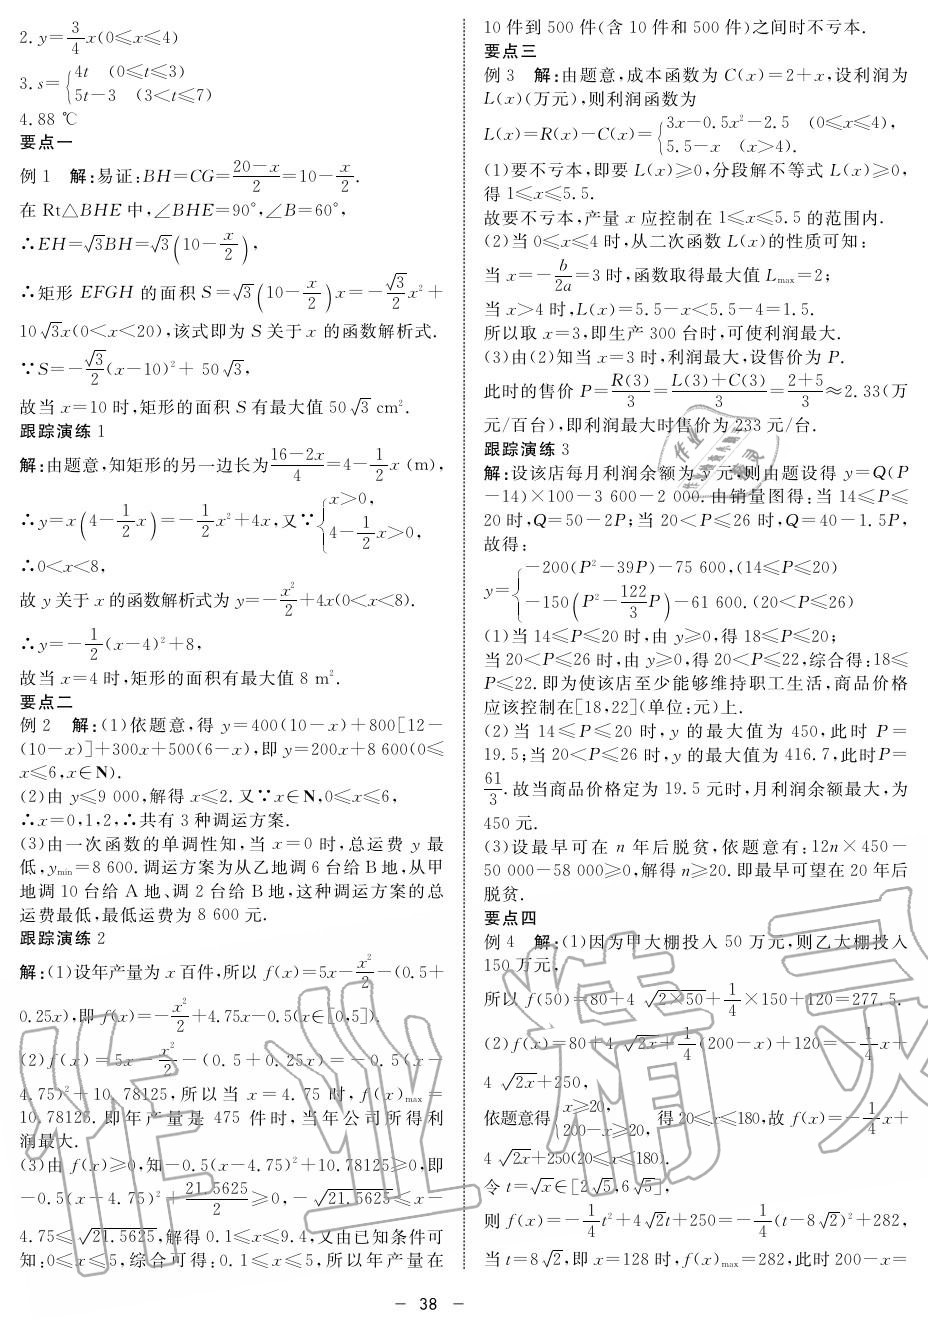 2. y=3/4x(0≤x≤4)
3. s={4t (0≤t≤3)
5t-3 (3<t≤7)
4. 88 ℃
要点一
例1 解:易证:BH=CG=(20-x)/2=10-x/2.
在Rt△BHE中,∠BHE=90°,∠B=60°,
∴EH=√3BH=√3(10-x/2),
∴矩形EFGH的面积S=√3(10-x/2)x=-√3/2x²+
10√3x(0<x<20),该式即为S关于x的函数解析式.
∵S=-√3/2(x-10)²+50√3,
故当x=10时,矩形的面积S有最大值50√3 cm².
跟踪演练1
解:由题意,知矩形的另一边长为(16-2x)/4=4-1/2x (m),
∴y=x(4-1/2x)=-1/2x²+4x,又∵{x>0,
4-1/2x>0,
∴0<x<8,
故y关于x的函数解析式为y=-x²/2+4x(0<x<8).
∴y=-1/2(x-4)²+8,
故当x=4时,矩形的面积有最大值8 m².
要点二
例2 解:(1)依题意,得y=400(10-x)+800[12-
(10-x)]+300x+500(6-x),即y=200x+8 600(0≤
x≤6,x∈N).
(2)由y≤9 000,解得x≤2.又∵x∈N,0≤x≤6,
∴x=0,1,2,∴共有3种调运方案.
(3)由一次函数的单调性知,当x=0时,总运费y最
低,ymin=8 600.调运方案为从乙地调6台给B地,从甲
地调10台给A地、调2台给B地,这种调运方案的总
运费最低,最低运费为8 600元.
跟踪演练2
解:(1)设年产量为x百件,所以f(x)=5x-x²/2-(0.5+
0.25x),即f(x)=-x²/2+4.75x-0.5(x∈[0,5]).
(2)f(x)=5x-x²/2-(0.5+0.25x)=-0.5(x-
4.75)²+10.78125,所以当x=4.75时,f(x)max=
10.78125.即年产量是475件时,当年公司所得利
润最大.
(3)由f(x)≥0,知-0.5(x-4.75)²+10.78125≥0,即
-0.5(x-4.75)²+21.5625/2≥0,-√21.5625≤x-
4.75≤√21.5625,解得0.1≤x≤9.4,又由已知条件可
知:0≤x≤5,综合可得:0.1≤x≤5,所以年产量在
10件到500件(含10件和500件)之间时不亏本.
要点三
例3 解:由题意,成本函数为C(x)=2+x,设利润为
L(x)(万元),则利润函数为
L(x)=R(x)-C(x)={3x-0.5x²-2.5 (0≤x≤4),
5.5-x (x>4).
(1)要不亏本,即要L(x)≥0,分段解不等式L(x)≥0,
得1≤x≤5.5.
故要不亏本,产量x应控制在1≤x≤5.5的范围内.
(2)当0≤x≤4时,从二次函数L(x)的性质可知:
当x=-b/2a=3时,函数取得最大值Lmax=2;
当x>4时,L(x)=5.5-x<5.5-4=1.5.
所以取x=3,即生产300台时,可使利润最大.
(3)由(2)知当x=3时,利润最大,设售价为P.
此时的售价P=R(3)/3=(L(3)+C(3))/3=(2+5)/3≈2.33(万
元/百台),即利润最大时售价为233元/台.
跟踪演练3
解:设该店每月利润余额为y元,则由题设得y=Q(P
-14)×100-3 600-2 000.由销量图得:当14≤P≤
20时,Q=50-2P;当20<P≤26时,Q=40-1.5P,
故得:
y={-200(P²-39P)-75 600,(14≤P≤20)
-150(P²-122/3P)-61 600.(20<P≤26)
(1)当14≤P≤20时,由y≥0,得18≤P≤20;
当20<P≤26时,由y≥0,得20<P≤22,综合得:18≤
P≤22.即为使该店至少能够维持职工生活,商品价格
应该控制在[18,22](单位:元)上.
(2)当14≤P≤20时,y的最大值为450,此时P=
19.5;当20<P≤26时,y的最大值为416.7,此时P=
61/3.故当商品价格定为19.5元时,月利润余额最大,为
450元.
(3)设最早可在n年后脱贫,依题意有:12n×450-
50 000-58 000≥0,解得n≥20.即最早可望在20年后
脱贫.
要点四
例4 解:(1)因为甲大棚投入50万元,则乙大棚投入
150万元.
所以f(50)=80+4√2×50+1/4×150+120=277.5.
(2)f(x)=80+4√2x+1/4(200-x)+120=-1/4x+
4√2x+250,
依题意得{x≥20,
200-x≥20,得20≤x≤180,故f(x)=-1/4x+
4√2x+250(20≤x≤180).
令t=√x∈[2√5,6√5],
则f(x)=-1/4t²+4√2t+250=-1/4(t-8√2)²+282,
当t=8√2,即x=128时,f(x)max=282,此时200-x=
- 38 -
作业精灵
作业精灵